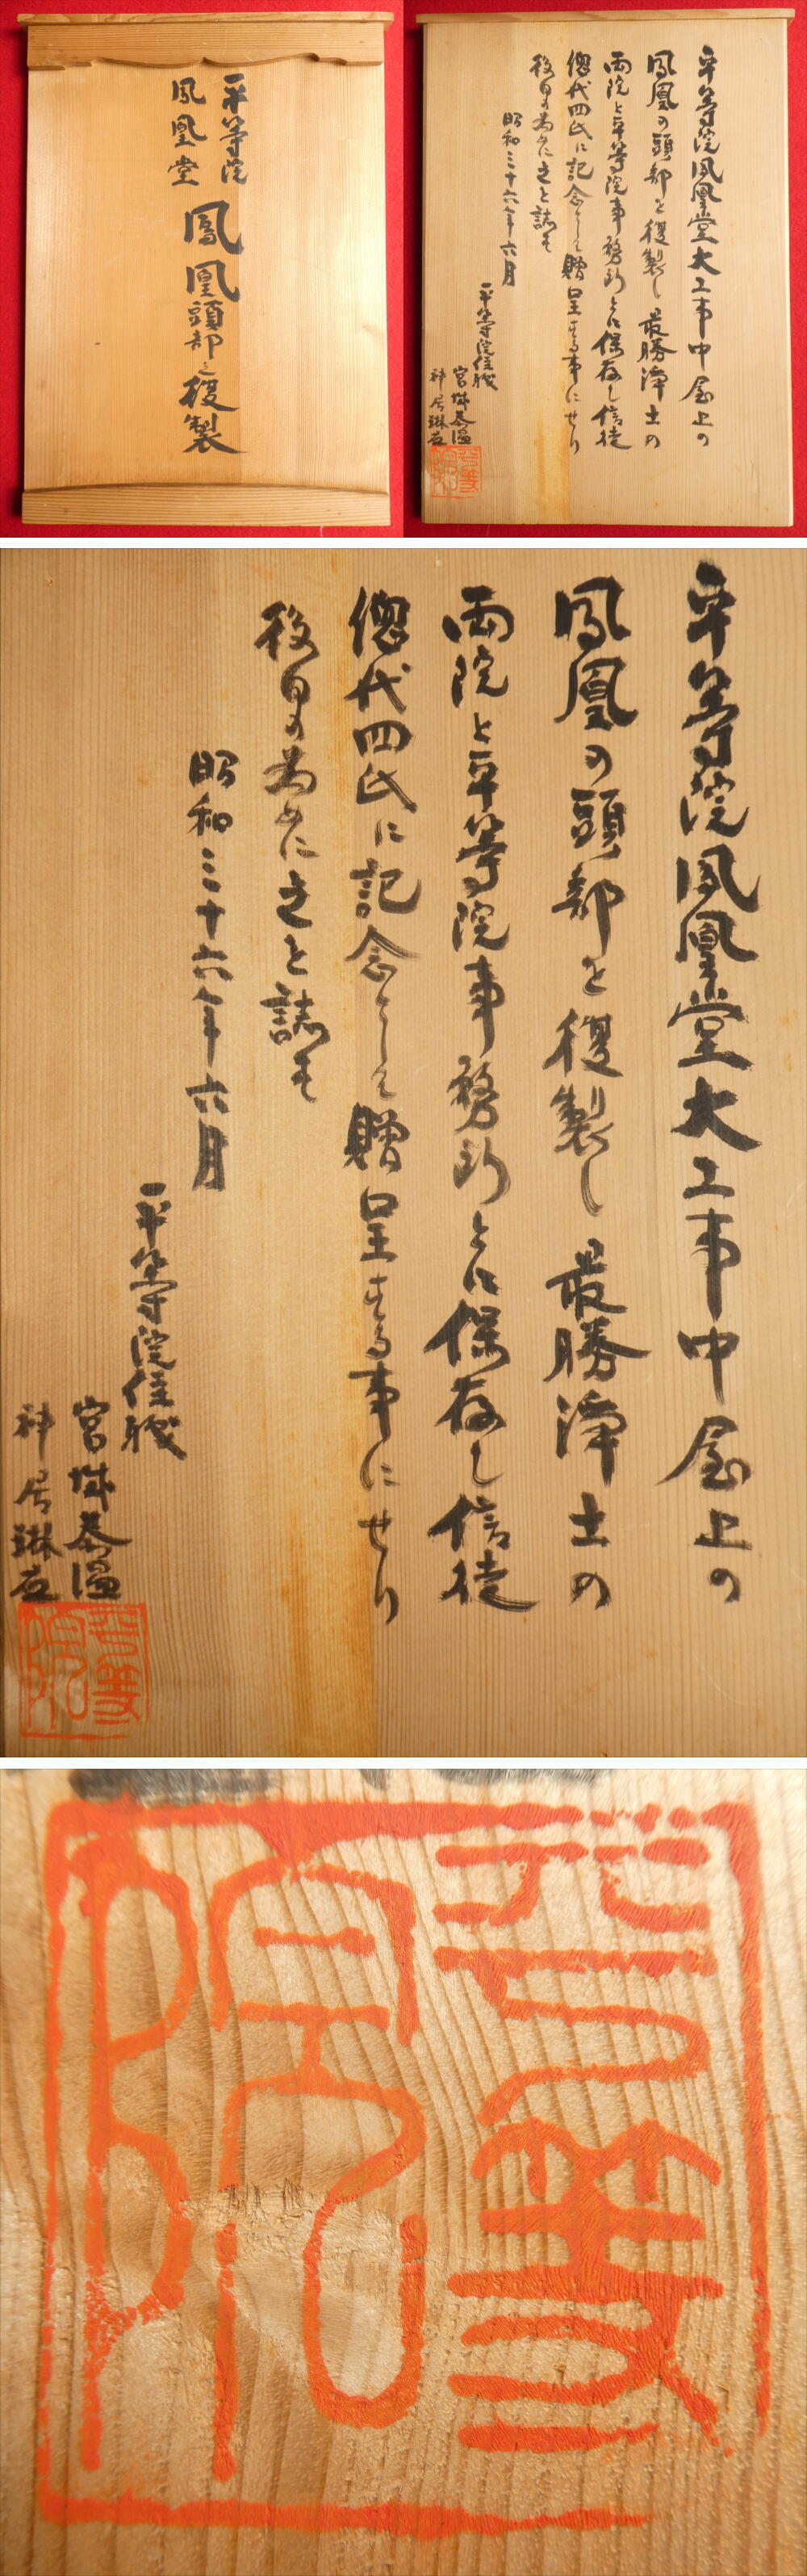 平等院
鳳凰堂
鳳凰頭部之複製
平等院鳳凰堂大工事中屋上の
鳳凰の頭部を複製し最勝浄土の
両院と平等院事務所とに保存し信徒
總代四氏に記念として贈呈する事にせり
後日の為めに之を誌す
昭和三十六年六月
平等院住職
宮城泰温
神居琳応
平等院鳳凰堂大工事中屋上の
鳳凰の頭部を複製し最勝浄土の
両院と平等院事務所とに保存し信徒
總代四氏に記念として贈呈する事にせり
後日の為めに之を誌す
昭和三十六年六月
平等院住職
宮城泰温
神居琳応